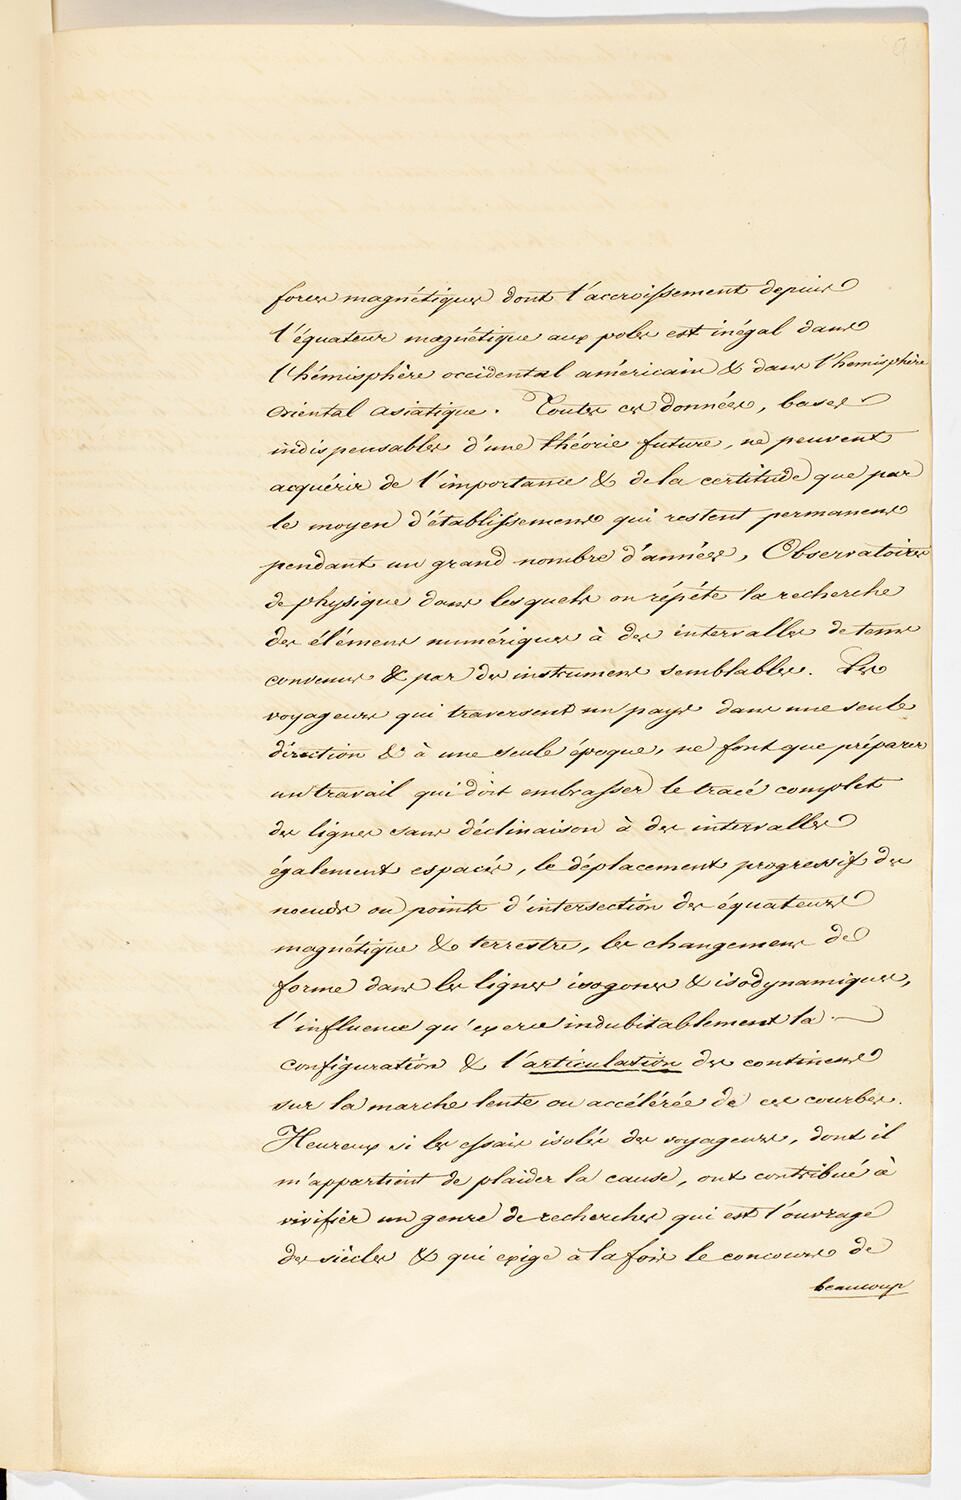 forces magnétiques dont l'accroissement depuis
l'équateur magnétique aux poles est inégal dans
l'hémisphère occidental américain & dans l'hémisphère
oriental asiatique. Toutes ces données, bases
indispensables d'une théorie future, ne peuvent
acquérir de l'importance & de la certitude que par
le moyen d'établissemens qui restent permanens
pendant un grand nombre d'années, Observatoires
de physique dans lesquels on répéte la recherche
des élémens numériques à des intervalles de tems
convenus & par des instrumens semblables. Les
voyageurs qui traversent un pays dans une seule
direction & à une seule époque, ne font que préparer
un travail qui doit embrasser le tracé complet
des lignes sans déclinaison à des intervalles
également espacés, le déplacement progressif des
noeuds ou points d'intersection des équateurs
magnétique & terrestre, les changemens de
forme dans les lignes isogones & isodynamiques,
l'influence qu'exerce indubitablement la
configuration & l'articulation des continens
sur la marche lente ou accélérée de ces courbes.
Heureux si les essais isolés des voyageurs, dont il
m'appartient de plaider la cause, ont contribué à
vivifier un genre de recherches qui est l'ouvrage
des siècles & qui exige à la fois le concours de
beaucoup